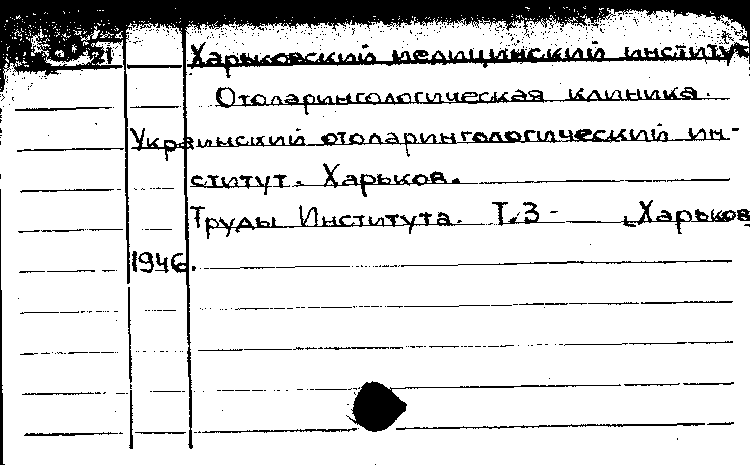 21 Харьковский медицинский институт
Отоларингологическая клиника.
Украинский отоларингологический ин-
ститут. Харьков.
Труды Института. Т.3 - [Харьков
1946.